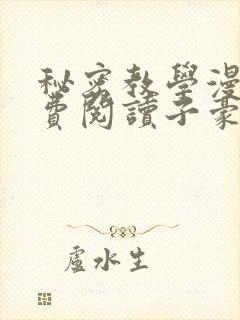 秘密教學漫
費閱讀子豪
盧水生